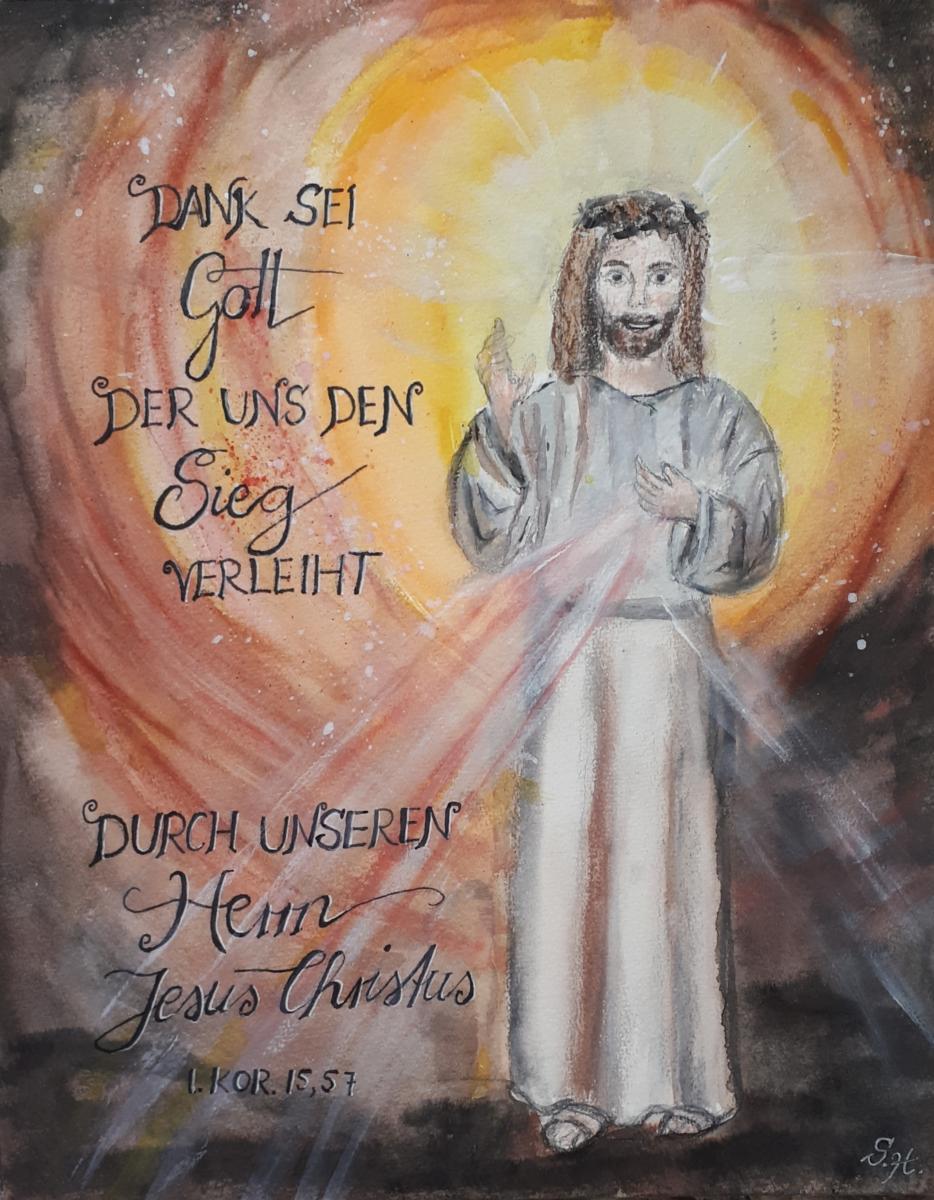 DANK SEI
Gott
DER UNS DEN
Sieg
VERLEIHT
DURCH UNSEREN
Herrn
Jesus Christus
1. KOR. 15,57
S.H.